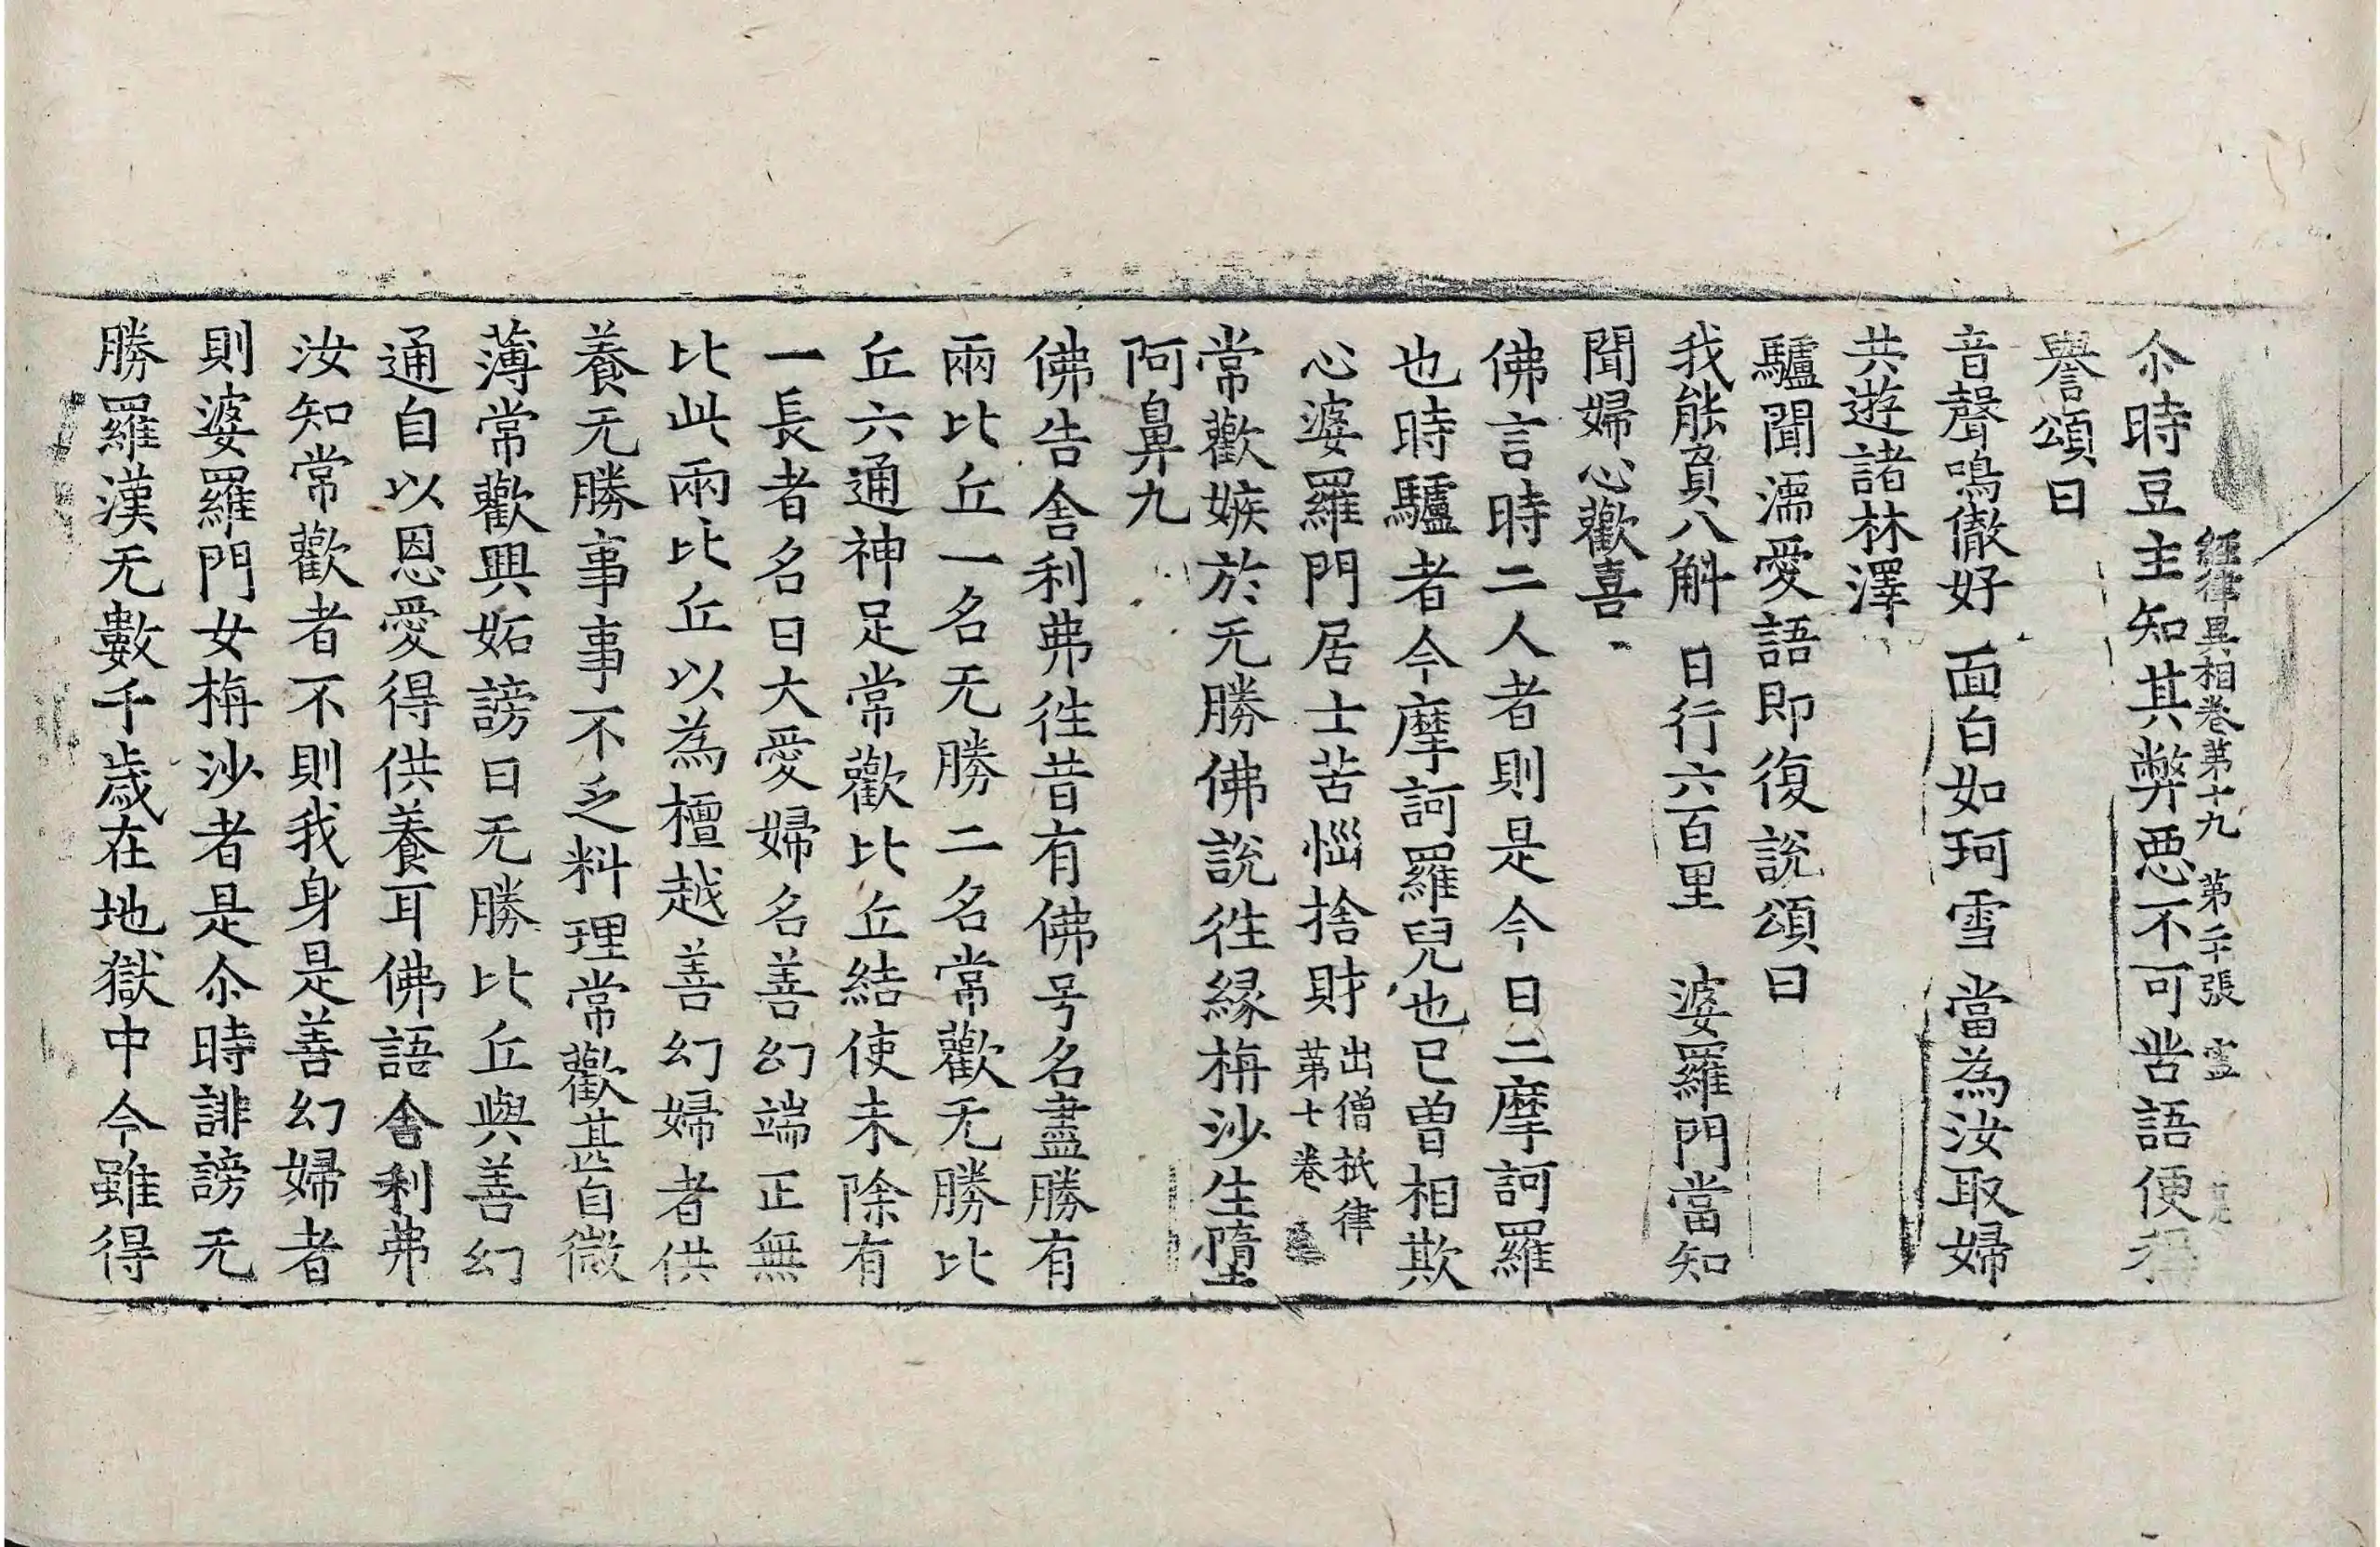 經律異相卷第十九 第二十張 㚑
尒時豆主知其弊惡不可苦語便稱
譽頌曰
音聲鳴徹好 面白如珂雪 當為汝取婦
共遊諸林澤
驢聞濡愛語即復說頌曰
我能負八斛 日行六百里 婆羅門當知
聞婦心歡喜
佛言時二人者則是今日二摩訶羅
也時驢者今摩訶羅兒也已曾相欺
心婆羅門居士苦惱捨財出僧祇律第七卷
常歡嫉於无勝佛說徃緣栴沙生墮
阿鼻九
佛告舍利弗徃昔有佛号名盡勝有
兩比丘一名无勝二名常歡无勝比
丘六通神足常歡比丘結使未除有
一長者名曰大愛婦名善幻端正無
比此兩比丘以為檀越善幻婦者供
養无勝事事不乏料理常歡甚自微
薄常歡興妬謗曰无勝比丘與善幻
通自以恩愛得供養耳佛語舍利弗
汝知常歡者不則我身是善幻婦者
則婆羅門女栴沙者是尒時誹謗无
勝羅漢无數千歲在地獄中今雖得